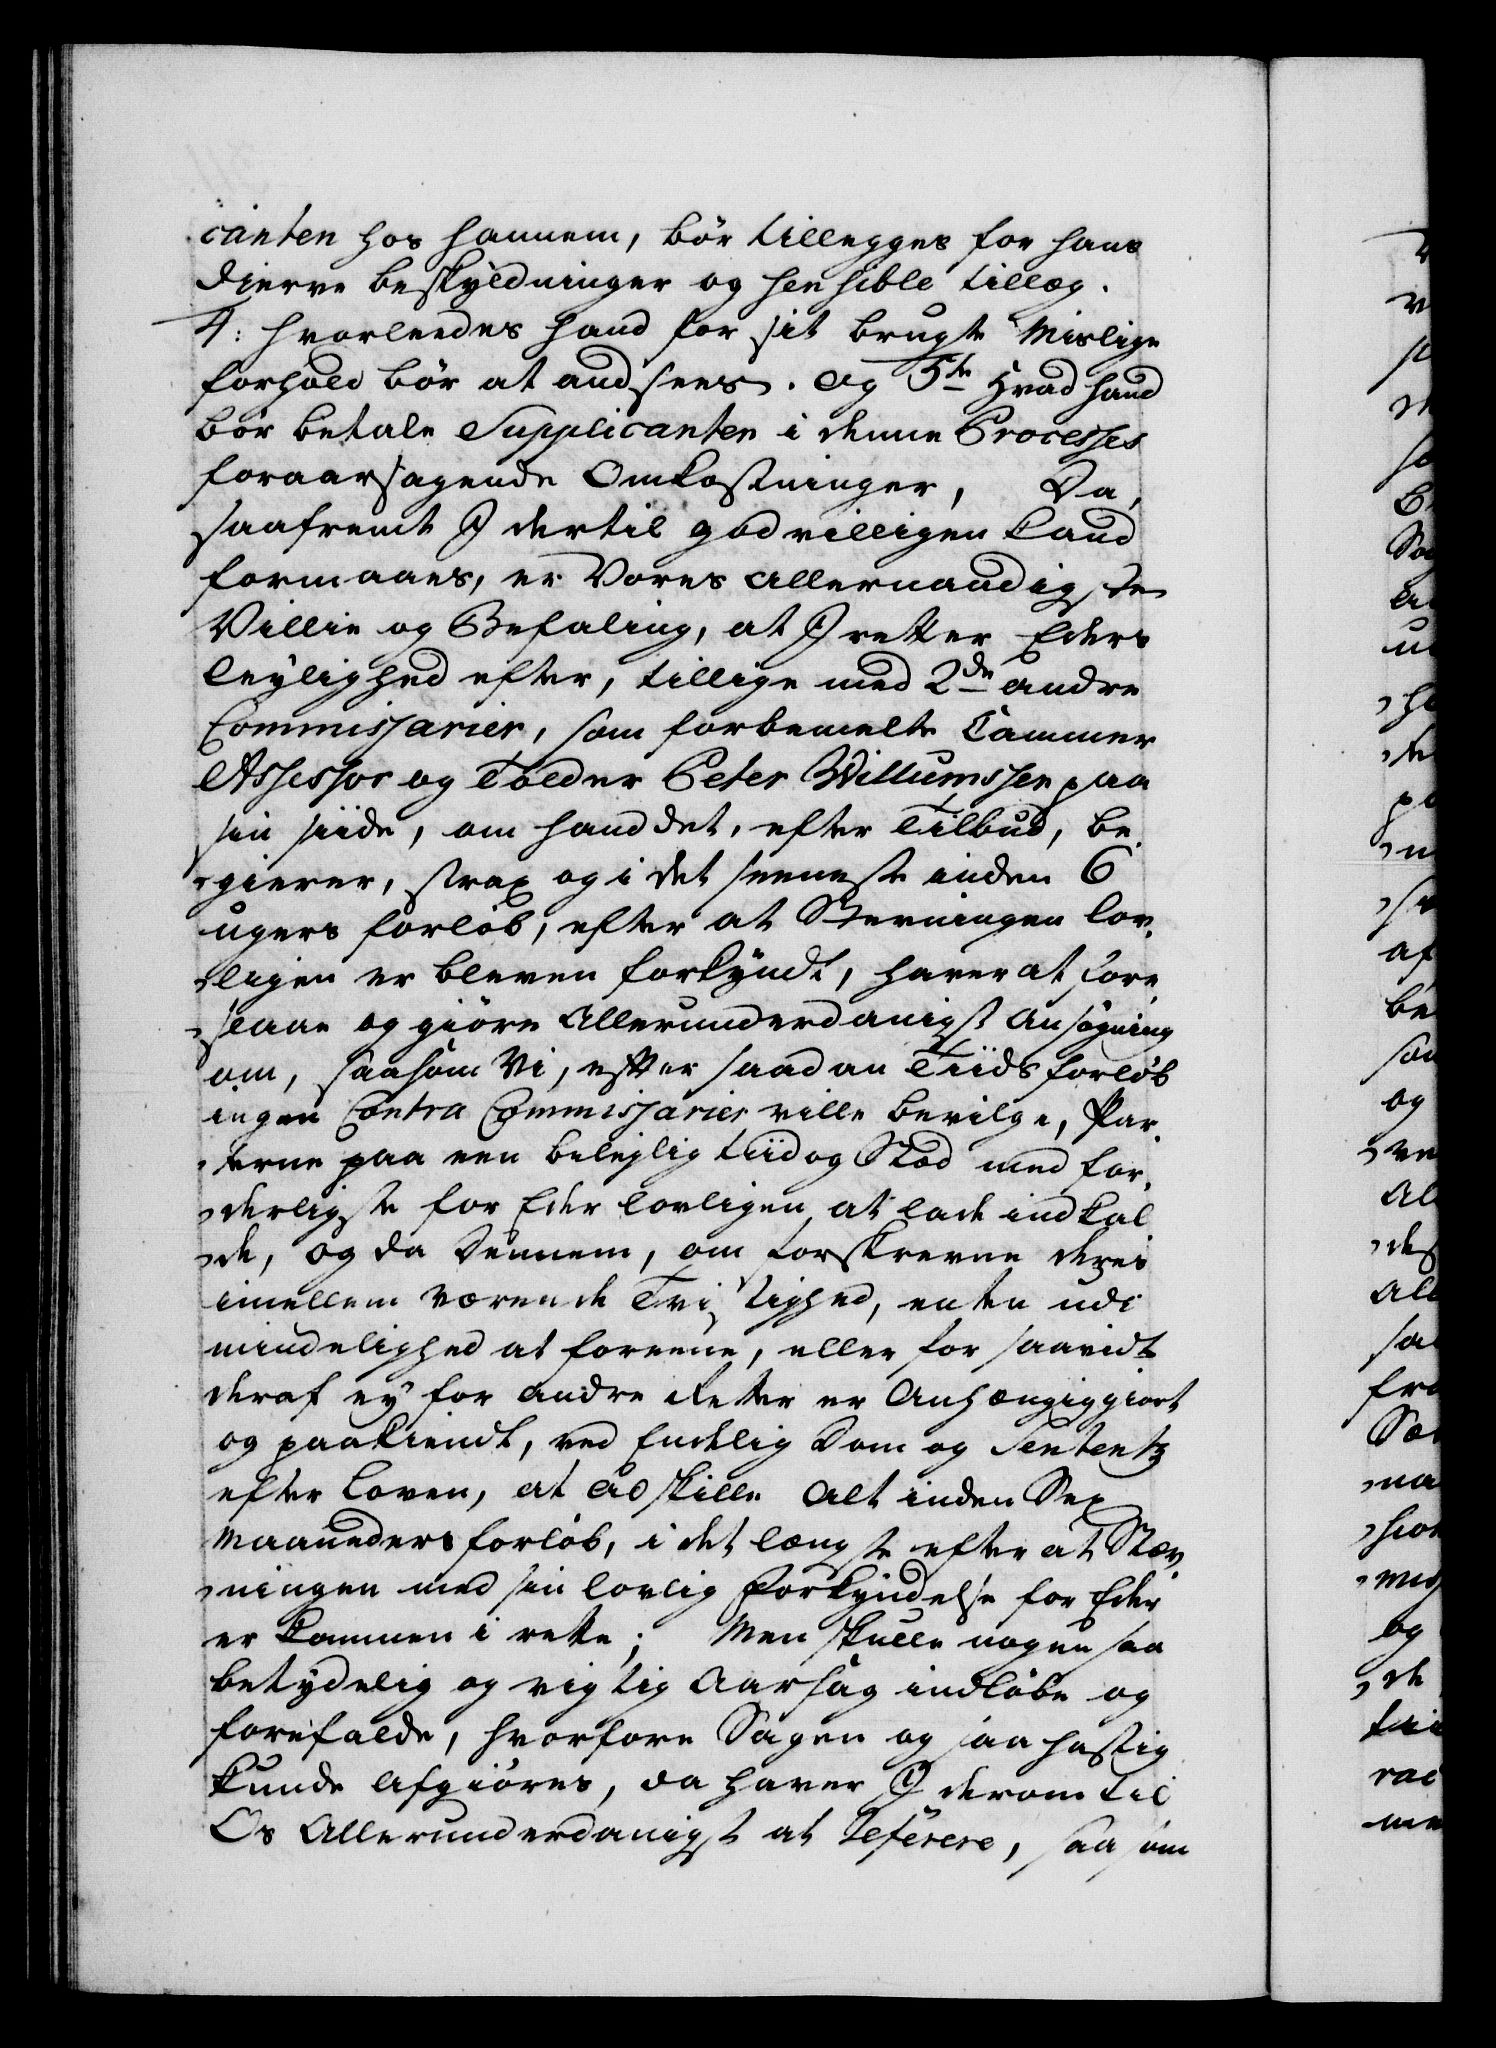 canten hos hannem, bør tillegges for hans
dierve beskyldninger og sensible tillæg.
4: hvorleedes hand for sit brugte Mislige
forhold bør at andsees. og 5te Hvad hand
bør betale Supplicanten i denne Processes
foraarsagende Omkostninger, Da,
saafremt I dertil godvilligen kand
formaaes, er Vores allernaadigste
Villie og Befaling, at I retter Eders
leylighed efter, tillige med 2de andre
Commissarier, som forbemelte Cammer
Assessor og Tolder Peter Willumssen paa
sin siide, om hand det, efter Tilbud, be-
gierer, strax og i det seeneste inden 6
ugers forløb, efter at Stevningen lov-
ligen er bleven forkyndt, haver at fore
slaae og giøre Allerunderdanigst Ansøgning
om, saasom Vi, efter saadan Tiids forløb
ingen Contra Commissarier ville bevilge, Par-
terne paa een beleylig tiid og Stæd med for-
derligste for Eder lovligen at lade indkal
de, og da Dennem, om forskrevne deres
imellem værende Tvistighed, enten udi
mindelighed at foreene, eller for saavidt
deraf ey for andre Retter er Anhængiggiort
og paakiendt, ved Endelig Dom og Sententz
efter Loven, at adskille Alt inden Sex
Maaneders forløb, i det længste efter at Stæv-
ningen med sin lovlig Forkyndelse for Eder
er kommen i rette; Men skulle nogen saa
betydelig og vigtig Aarsag indløbe og
forefalde, hvorfore Sagen og saa hastig
kunde Afgiøres, da haver I derom til
Os Allerunderdanigst at referere, saasom